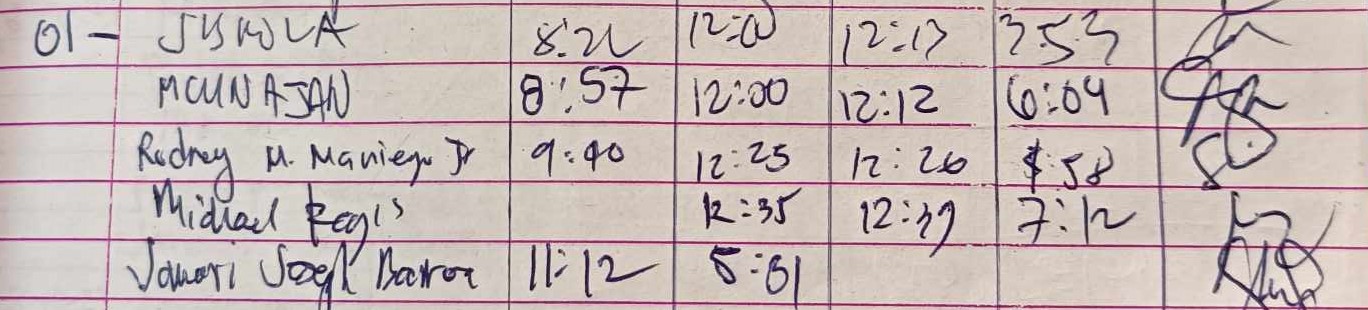 01 - 8:22 12:00 12:13 3:53
MCUNAJAN 8:57 12:00 12:12 6:04
Rodney M. Maniego Jr 9:40 12:25 12:26 :58
Michael Regis 12:35 12:39 7:12
11:12 5:01